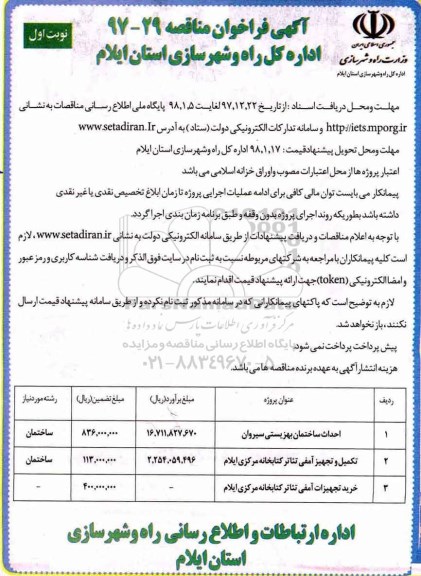 آگهی فراخوان مناقصه ۲۹-۹۷
اداره کل راه و شهرسازی استان ایلام
نوبت اول
جمهوری اسلامی ایران
وزارت راه و شهرسازی
اداره کل راه و شهرسازی استان ایلام
مهلت ومحل دریافت اسناد : از تاریخ ۹۷،۱۲،۲۲ لغایت ۹۸،۱،۵ پایگاه ملی اطلاع رسانی مناقصات به نشانی
http//iets.mporg.ir و سامانه تدارکات الکترونیکی دولت (ستاد) به آدرس www.setadiran.Ir
مهلت ومحل تحویل پیشنهاد قیمت: ۹۸،۱،۱۷ اداره کل راه وشهرسازی استان ایلام
اعتبار پروژه ها از محل اعتبارات مصوب واوراق خزانه اسلامی می باشد
پیمانکار می بایست توان مالی کافی برای ادامه عملیات اجرایی پروژه تا زمان ابلاغ تخصیص نقدی یا غیر نقدی
داشته باشد بطوریکه روند اجرای پروژه بدون وقفه و طبق برنامه زمان بندی اجرا گردد.
با توجه به اعلام مناقصات و دریافت پیشنهادات از طریق سامانه الکترونیکی دولت به نشانی www.setadiran.ir، لازم
است کلیه پیمانکاران با مراجعه به شرکتهای مربوطه نسبت به ثبت نام در سایت فوق الذکر و دریافت شناسه کاربری و رمز عبور
و امضا الکترونیکی (token) جهت ارائه پیشنهاد قیمت اقدام نمایند.
لازم به توضیح است که پاکتهای پیمانکارانی که در سامانه مذکور ثبت نام نکرده و از طریق سامانه پیشنهاد قیمت ارسال
نکنند، باز نخواهد شد.
پیش پرداخت پرداخت نمی شود.
هزینه انتشار آگهی به عهده برنده مناقصه ها می باشد.
پایگاه اطلاع رسانی مناقصه و مزایده
۰۲۱-۸۸۳۴۹۶۷۰-۵
ردیف عنوان پروژه مبلغ برآورد(ریال) مبلغ تضمین(ریال) رشته مورد نیاز
۱ احداث ساختمان بهزیستی سیروان ۱۶،۷۱۱،۸۲۷،۶۷۰ ۸۳۶،۰۰۰،۰۰۰ ساختمان
۲ تکمیل و تجهیز آمفی تئاتر کتابخانه مرکزی ایلام ۲،۲۵۴،۰۵۹،۴۹۶ ۱۱۳،۰۰۰،۰۰۰ ساختمان
۳ خرید تجهیزات آمفی تئاتر کتابخانه مرکزی ایلام - ۴۰۰،۰۰۰،۰۰۰ -
اداره ارتباطات و اطلاع رسانی راه و شهرسازی
استان ایلام